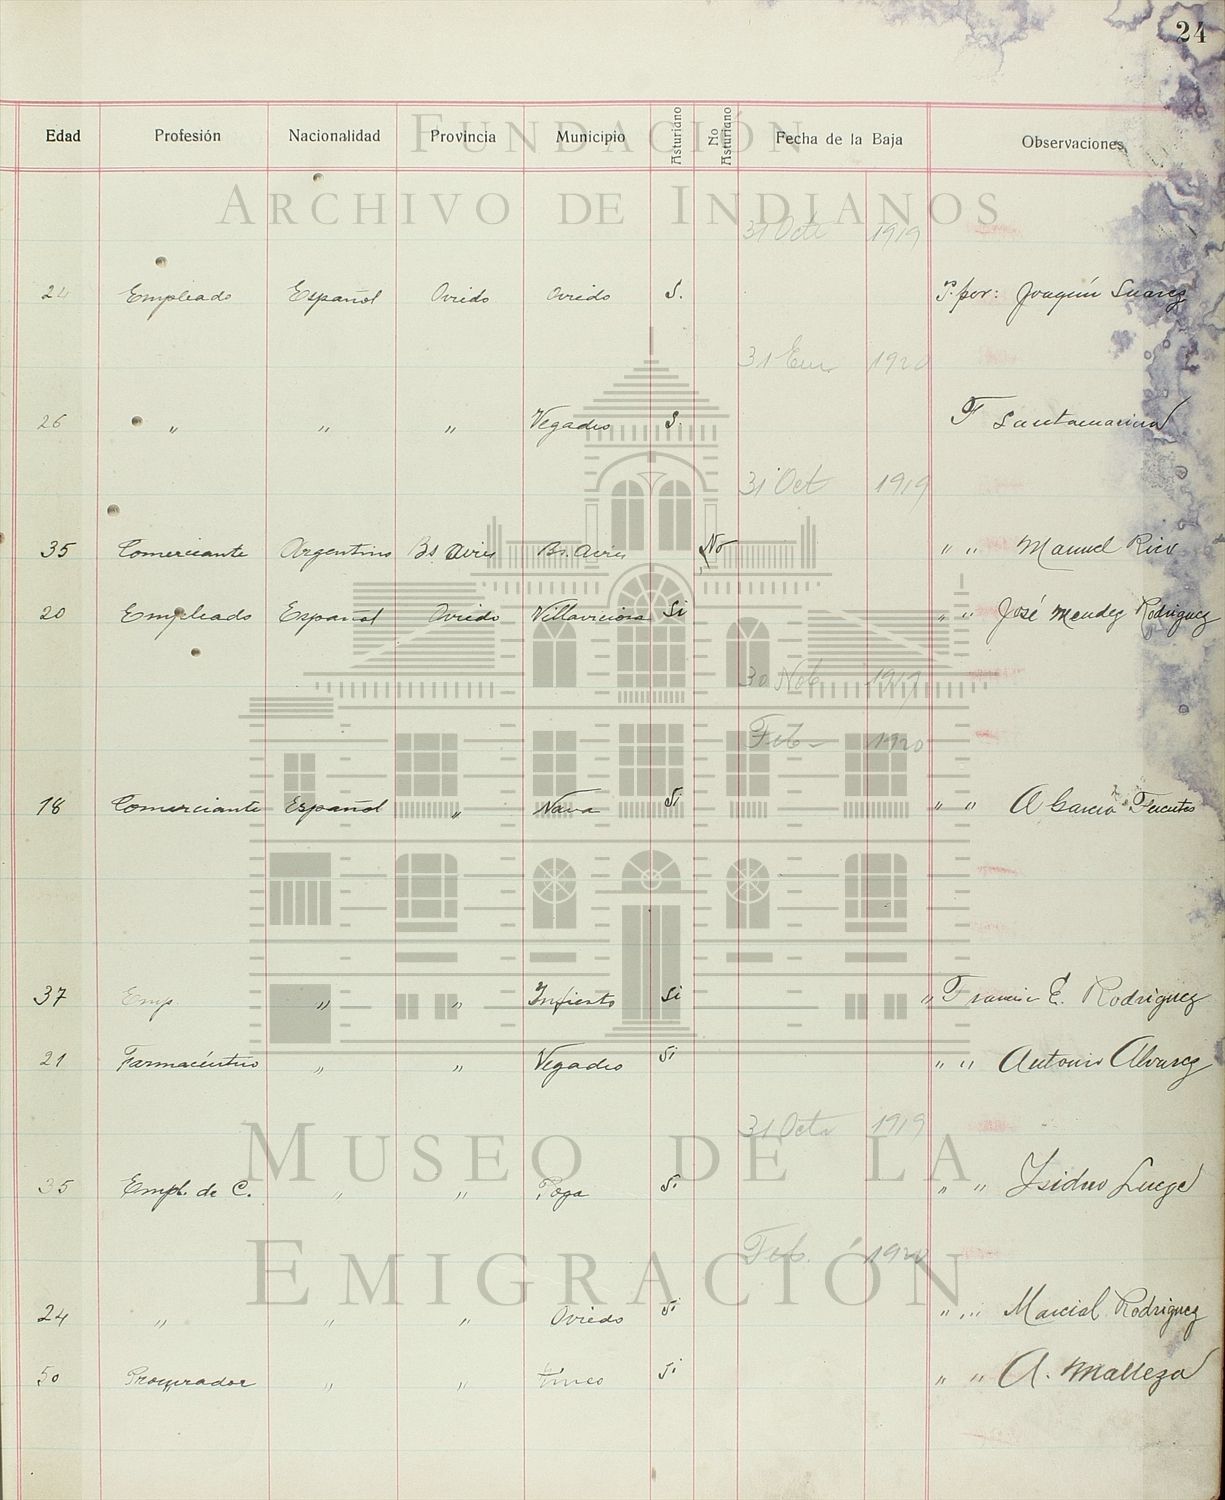 24
Edad Profesión Nacionalidad Provincia Municipio Asturiano No Asturiano Fecha de la Baja Observaciones
FUNDACIÓN
ARCHIVO DE INDIANOS
31 Octe 1919
24 Empleado Español Oviedo Oviedo S. P. por: Joaquín Suarez
31 Enr. 1920
26 " " " Vegadeo S. F Santamarina
31 Oct 1919
35 Comerciante Argentino Bs. Aires Bs. Aires No " " Manuel Rico
20 Empleado Español Oviedo Villaviciosa Si " " José Mendez Rodriguez
30 Nob 1919
Feb 1920
18 Comerciante Español " Nava Si " " A Garcia Fuentes
37 Emp. " " Infiesto Si " E. Rodriguez
21 " " Vegadeo Si " " Antonio Alvarez
MUSEO DE LA
31 Octe 1919
35 Empl. de C. " " Si " " Isidro
EMIGRACIÓN
Feb. 1920
24 " " " Oviedo Si " " Marcial Rodriguez
50 Procurador " " Tineo Si " " A. Malleza